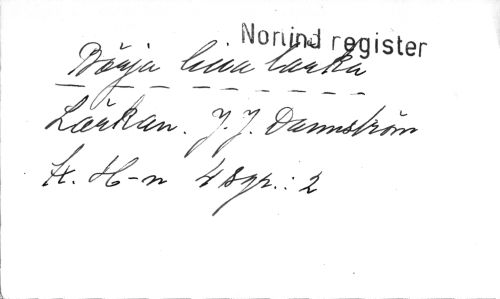 Norlind register
Börja lilla lärka
Lärkan. J. J. Dannström
H-n 4 sgr.: 2